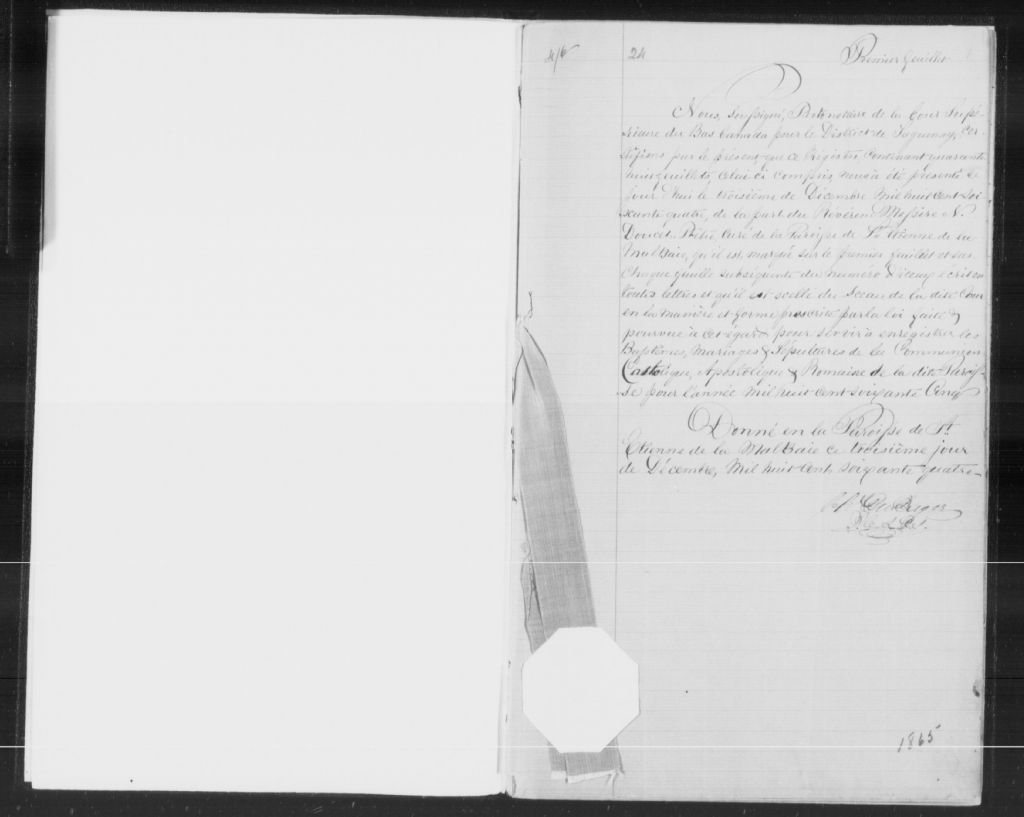 24 Premier feuillet
Nous, soussigné, Protonotaire de la Cour Supé-
rieure du Bas Canada pour le District de Saguenay, cer-
tifions par le présent que ce Régistre, contenant quarante
huit feuillets, celui ci compris, nous a été présenté ce
jour d'hui le troisième de Décembre Mil huit cent soi-
xante quatre, de la part du Révérend Messire N.
Doucet Prêtre, Curé de la Paroisse de St Etienne de la
MalBaie, qu'il est marqué sur le premier feuillet et sur
chaque feuille subséquente du numéro d'iceux écrit en
toutes lettres et qu'il est scellé du Sceau de la dite Cour
en la manière et forme prescrite par la loi faite &
pourvue à cet égard pour servir à enregistrer les
Baptêmes, Mariages & Sépultures de la Communion
Catholique, Apostolique & Romaine de la dite Parois-
se pour l'année mil huit cent soixante Cinq
Donné en la Paroisse de St
Etienne de la MalBaie ce troisième jour
de Décembre, Mil huit Cent soixante quatre-
1865